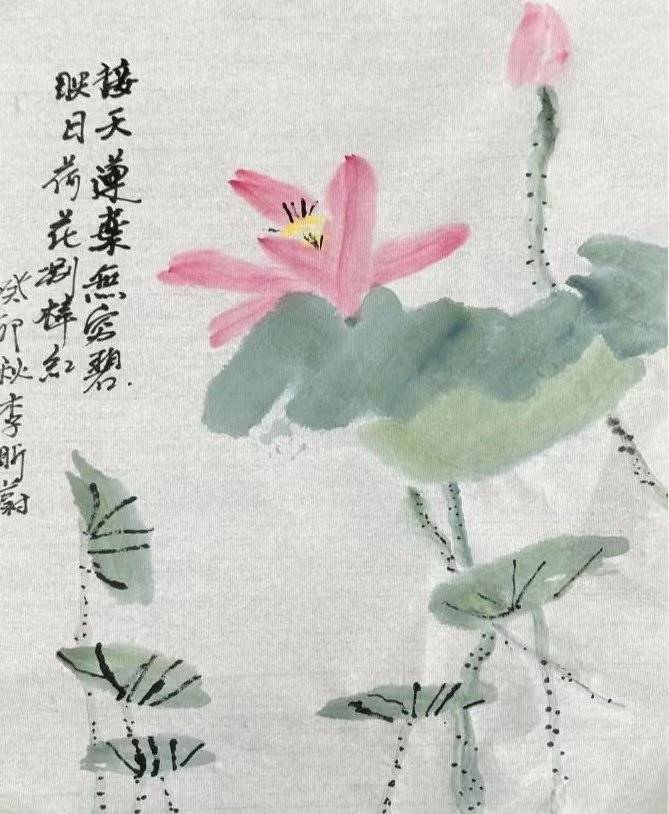 接天蓮葉無窮碧
映日荷花别样紅
癸卯秋李昕蔚